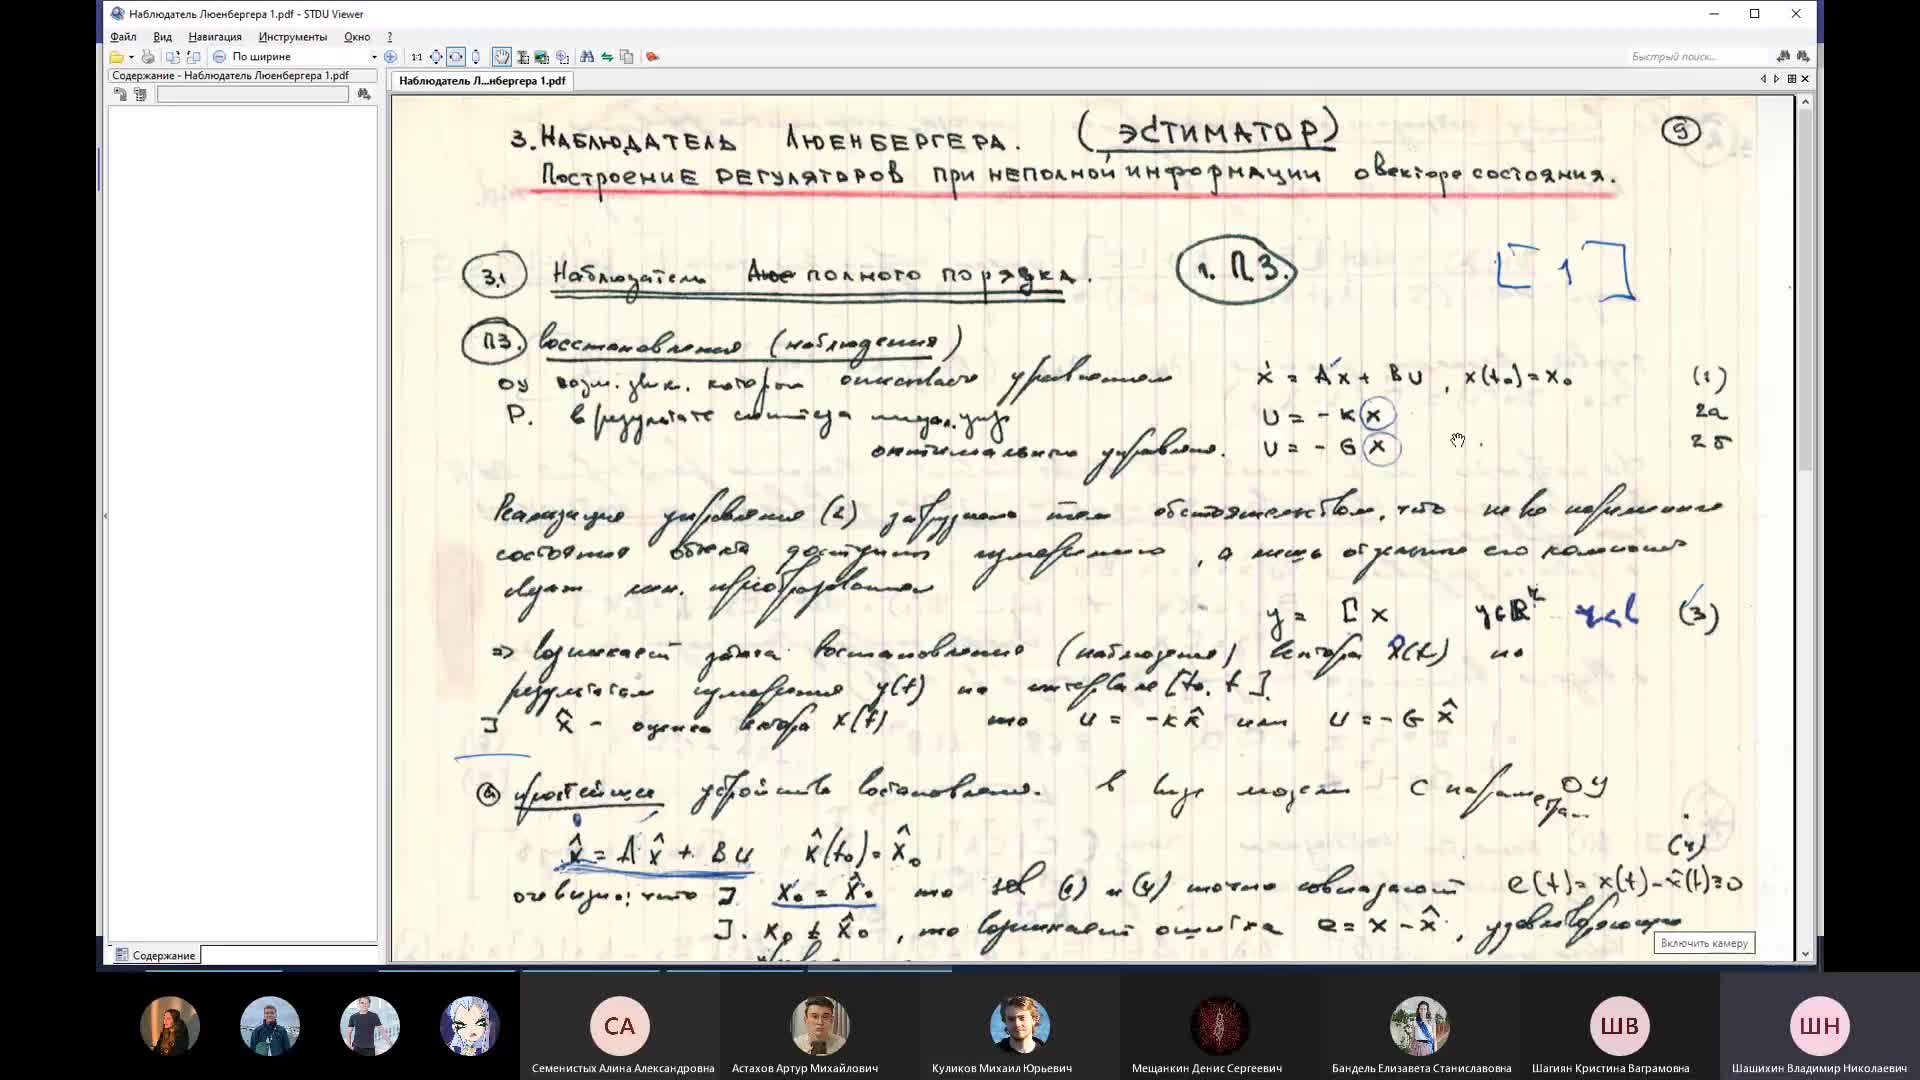 Наблюдатель Люенбергера 1.pdf - STDU Viewer
Файл Вид Навигация Инструменты Окно ?
По ширине
1:1
Быстрый поиск...
Содержание - Наблюдатель Люенбергера 1.pdf
Наблюдатель Л...нбергера 1.pdf
3. НАБЛЮДАТЕЛЬ ЛЮЕНБЕРГЕРА. (ЭСТИМАТОР) 9
ПОСТРОЕНИЕ РЕГУЛЯТОРОВ ПРИ НЕПОЛНОЙ ИНФОРМАЦИИ О ВЕКТОРЕ СОСТОЯНИЯ.
3.1 Наблюдатель полного порядка. 1. ПЗ. [ 1 ]
ПЗ. восстановления (наблюдения)
ОУ возм. движ. которого описывается уравнением ẋ = Ax + BU, x(t₀) = x₀ (1)
Р. в результате синтеза U = -K x 2а
оптимального управления. U = -G x 2б
Реализация управления (2) затруднена тем обстоятельством, что не все переменные
состояния объекта доступны измерению, а лишь отдельные его
лин. преобразование
y = C x (3)
=> возникает задача восстановления (наблюдения) вектора x̂(t) по
результатам измерения y(t) на интервале [t₀, t].
x̂ - оценка вектора x(t) то U = -K x̂ или U = -G x̂
простейшее устройство восстановления. в виде модели с параметрами ОУ
x̂̇ = A x̂ + BU x̂(t₀) = x̂₀ (4)
очевидно, что x₀ = x̂₀ то (1) и (4) точно совпадают e(t) = x(t) - x̂(t) ≡ 0
x₀ ≠ x̂₀, то возникает ошибка e = x - x̂, удовлетворяющая
Включить камеру
Содержание
СА
ШВ
ШН
Семенистых Алина Александровна
Астахов Артур Михайлович
Куликов Михаил Юрьевич
Мещанкин Денис Сергеевич
Бандель Елизавета Станиславовна
Шагиян Кристина Ваграмовна
Шашихин Владимир Николаевич